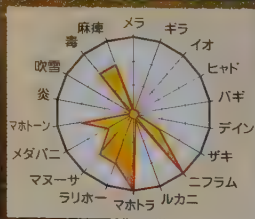 メラ
ギラ
イオ
ヒャド
バギ
デイン
ザキ
ニフラム
ルカニ
マホトラ
ラリホー
マヌーサ
メダパニ
マホトーン
炎
吹雪
毒
麻痺